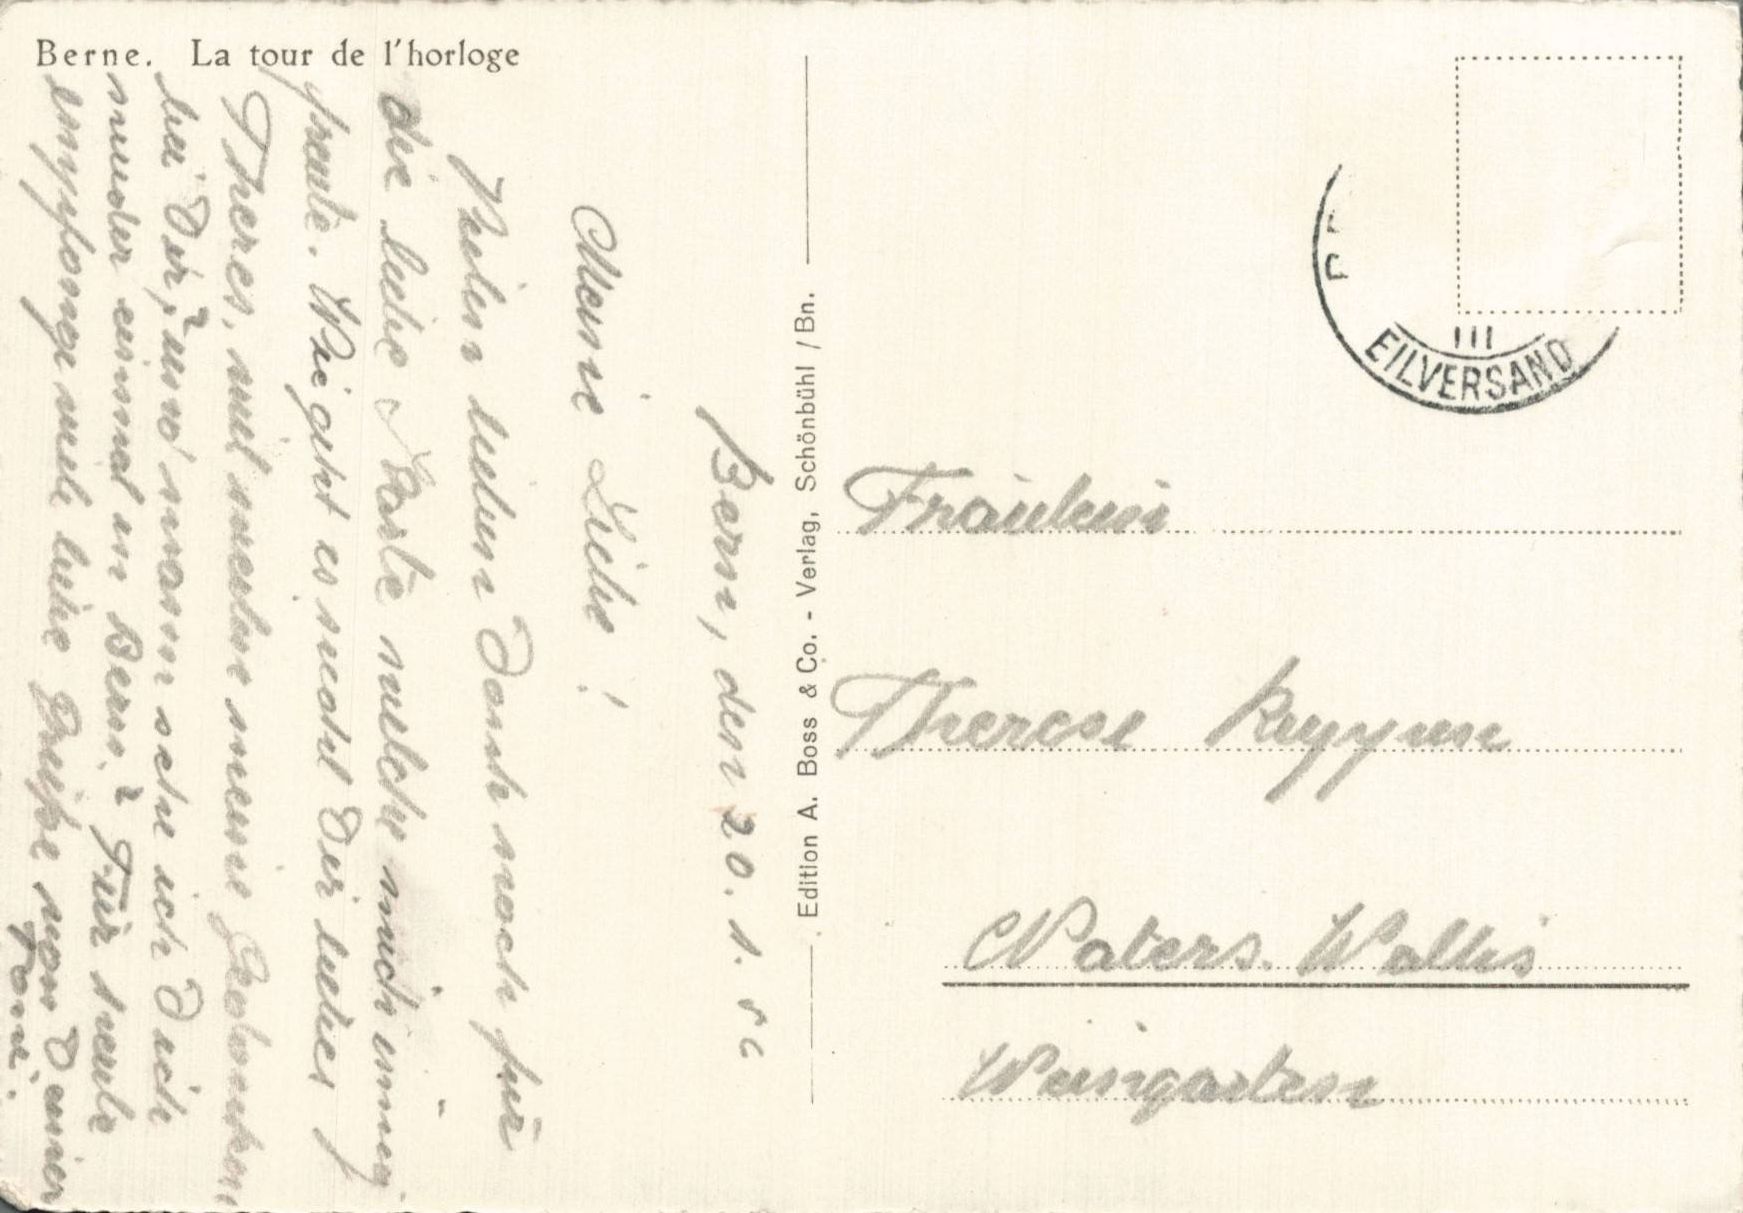 Berne. La tour de l'horloge
Bern, den 20. 1.
Meine Liebe!
Vielen lieben Dank noch für
die liebe Karte welche mich innig
freute. Wie geht es wohl Dir liebes
Theres, viel weilen meine Gedanken
bei Dir, und wann sehe ich Dich
wieder einmal in Bern? Für heute
empfange viele liebe Grüsse von Deiner
Edition A. Boss & Co. - Verlag, Schönbühl / Bn.
EILVERSAND
Fräulein
Therese Ruppen
Naters. Wallis
Weingarten